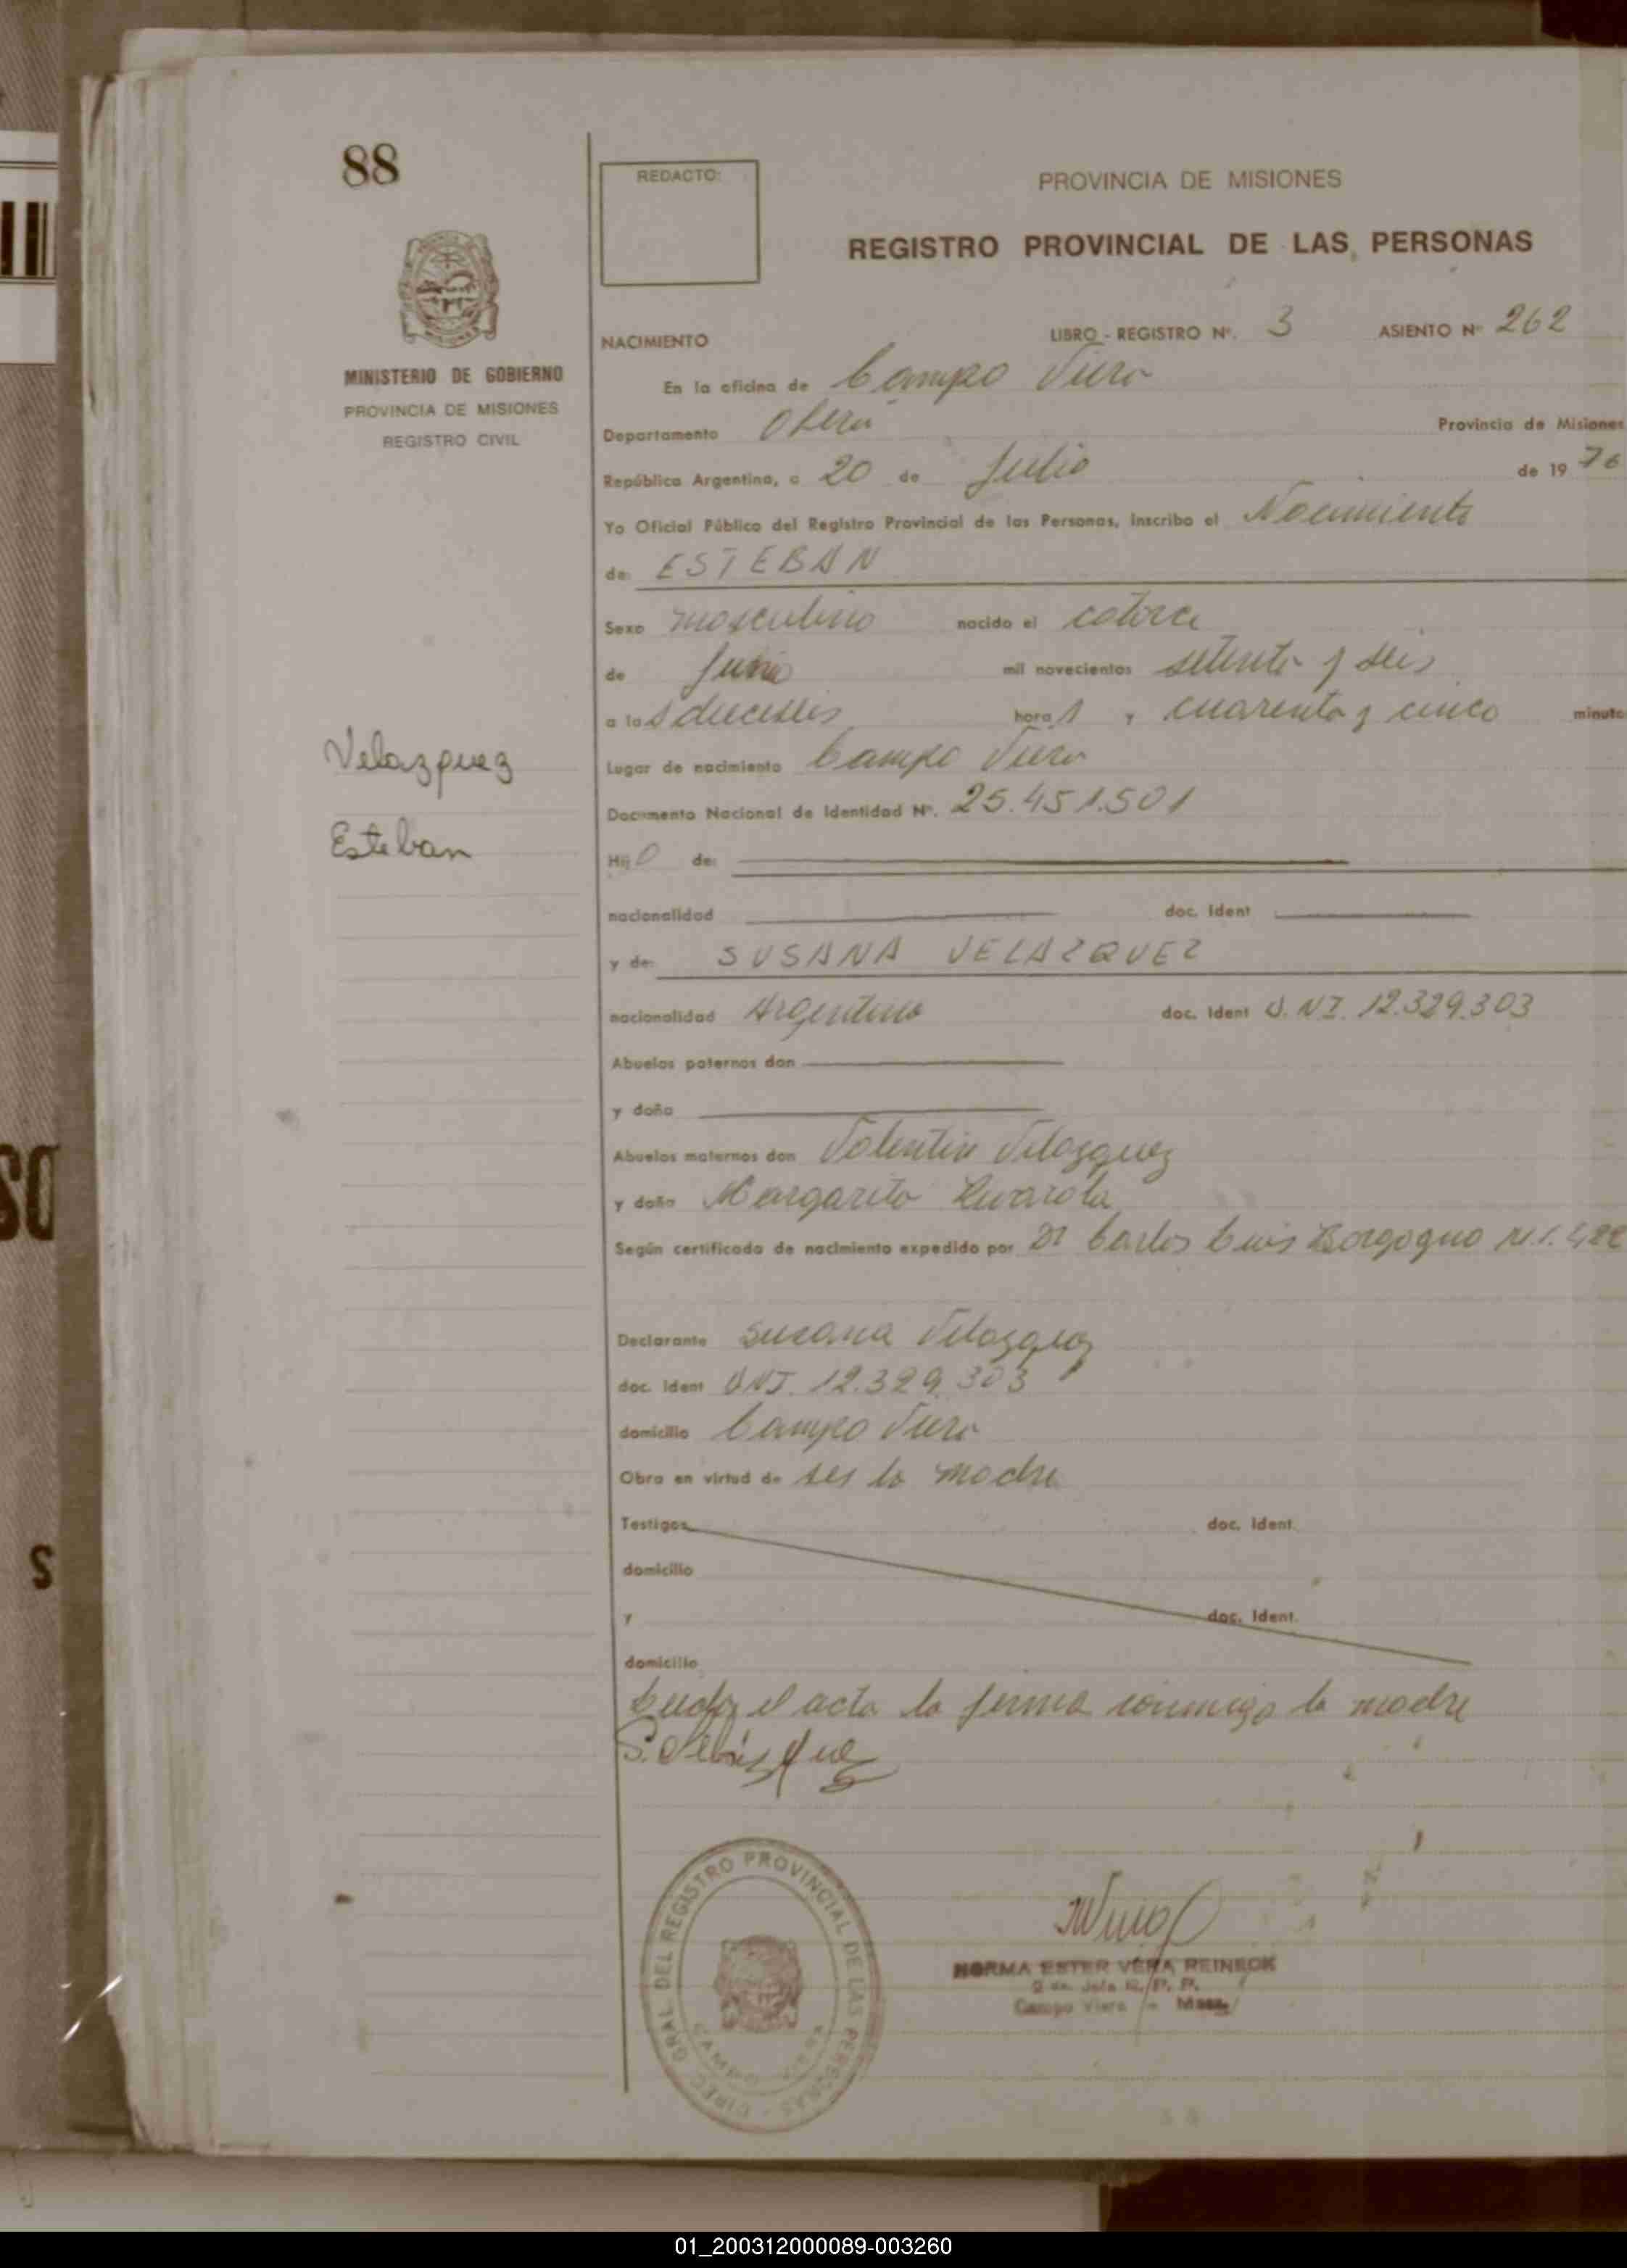 88
REDACTO:
PROVINCIA DE MISIONES
REGISTRO PROVINCIAL DE LAS PERSONAS
NACIMIENTO
LIBRO - REGISTRO Nº. 3 ASIENTO Nº 262
MINISTERIO DE GOBIERNO
PROVINCIA DE MISIONES
REGISTRO CIVIL
En la oficina de Campo Viera
Departamento Oberá Provincia de Misiones
República Argentina, a 20 de Julio de 1976
Yo Oficial Público del Registro Provincial de las Personas, inscribo el Nacimiento
de: ESTEBAN
Sexo masculino nacido el catorce
de Junio mil novecientos setenta y seis
a las dieciseis horas y cuarenta y cinco minuto
Velazquez
Esteban
Lugar de nacimiento Campo Viera
Documento Nacional de Identidad Nº. 25.451.501
Hijo de:
nacionalidad doc. Ident
y de: SUSANA VELAZQUEZ
nacionalidad Argentina doc. Ident D.N.I. 12.329.303
Abuelos paternos don
y doña
Abuelos maternos don Valentin Velazquez
y doña Margarita
Según certificado de nacimiento expedido por Dr Carlos Luis Borgogno
Declarante Susana Velazquez
doc. Ident DNI. 12.329.303
domicilio Campo Viera
Obra en virtud de ser la madre
Testigos doc. Ident.
domicilio
y doc. Ident.
domicilio
Leida el acta la firma conmigo la madre
S. Velázquez
GRAL DEL REGISTRO PROVINCIAL DE LAS PERSONAS - DIREC.
CAMPO VIERA
NORMA ESTER VERA REINECK
Jefe R. P. P.
Campo Viera - Mnes.
SO
S
01_200312000089-003260